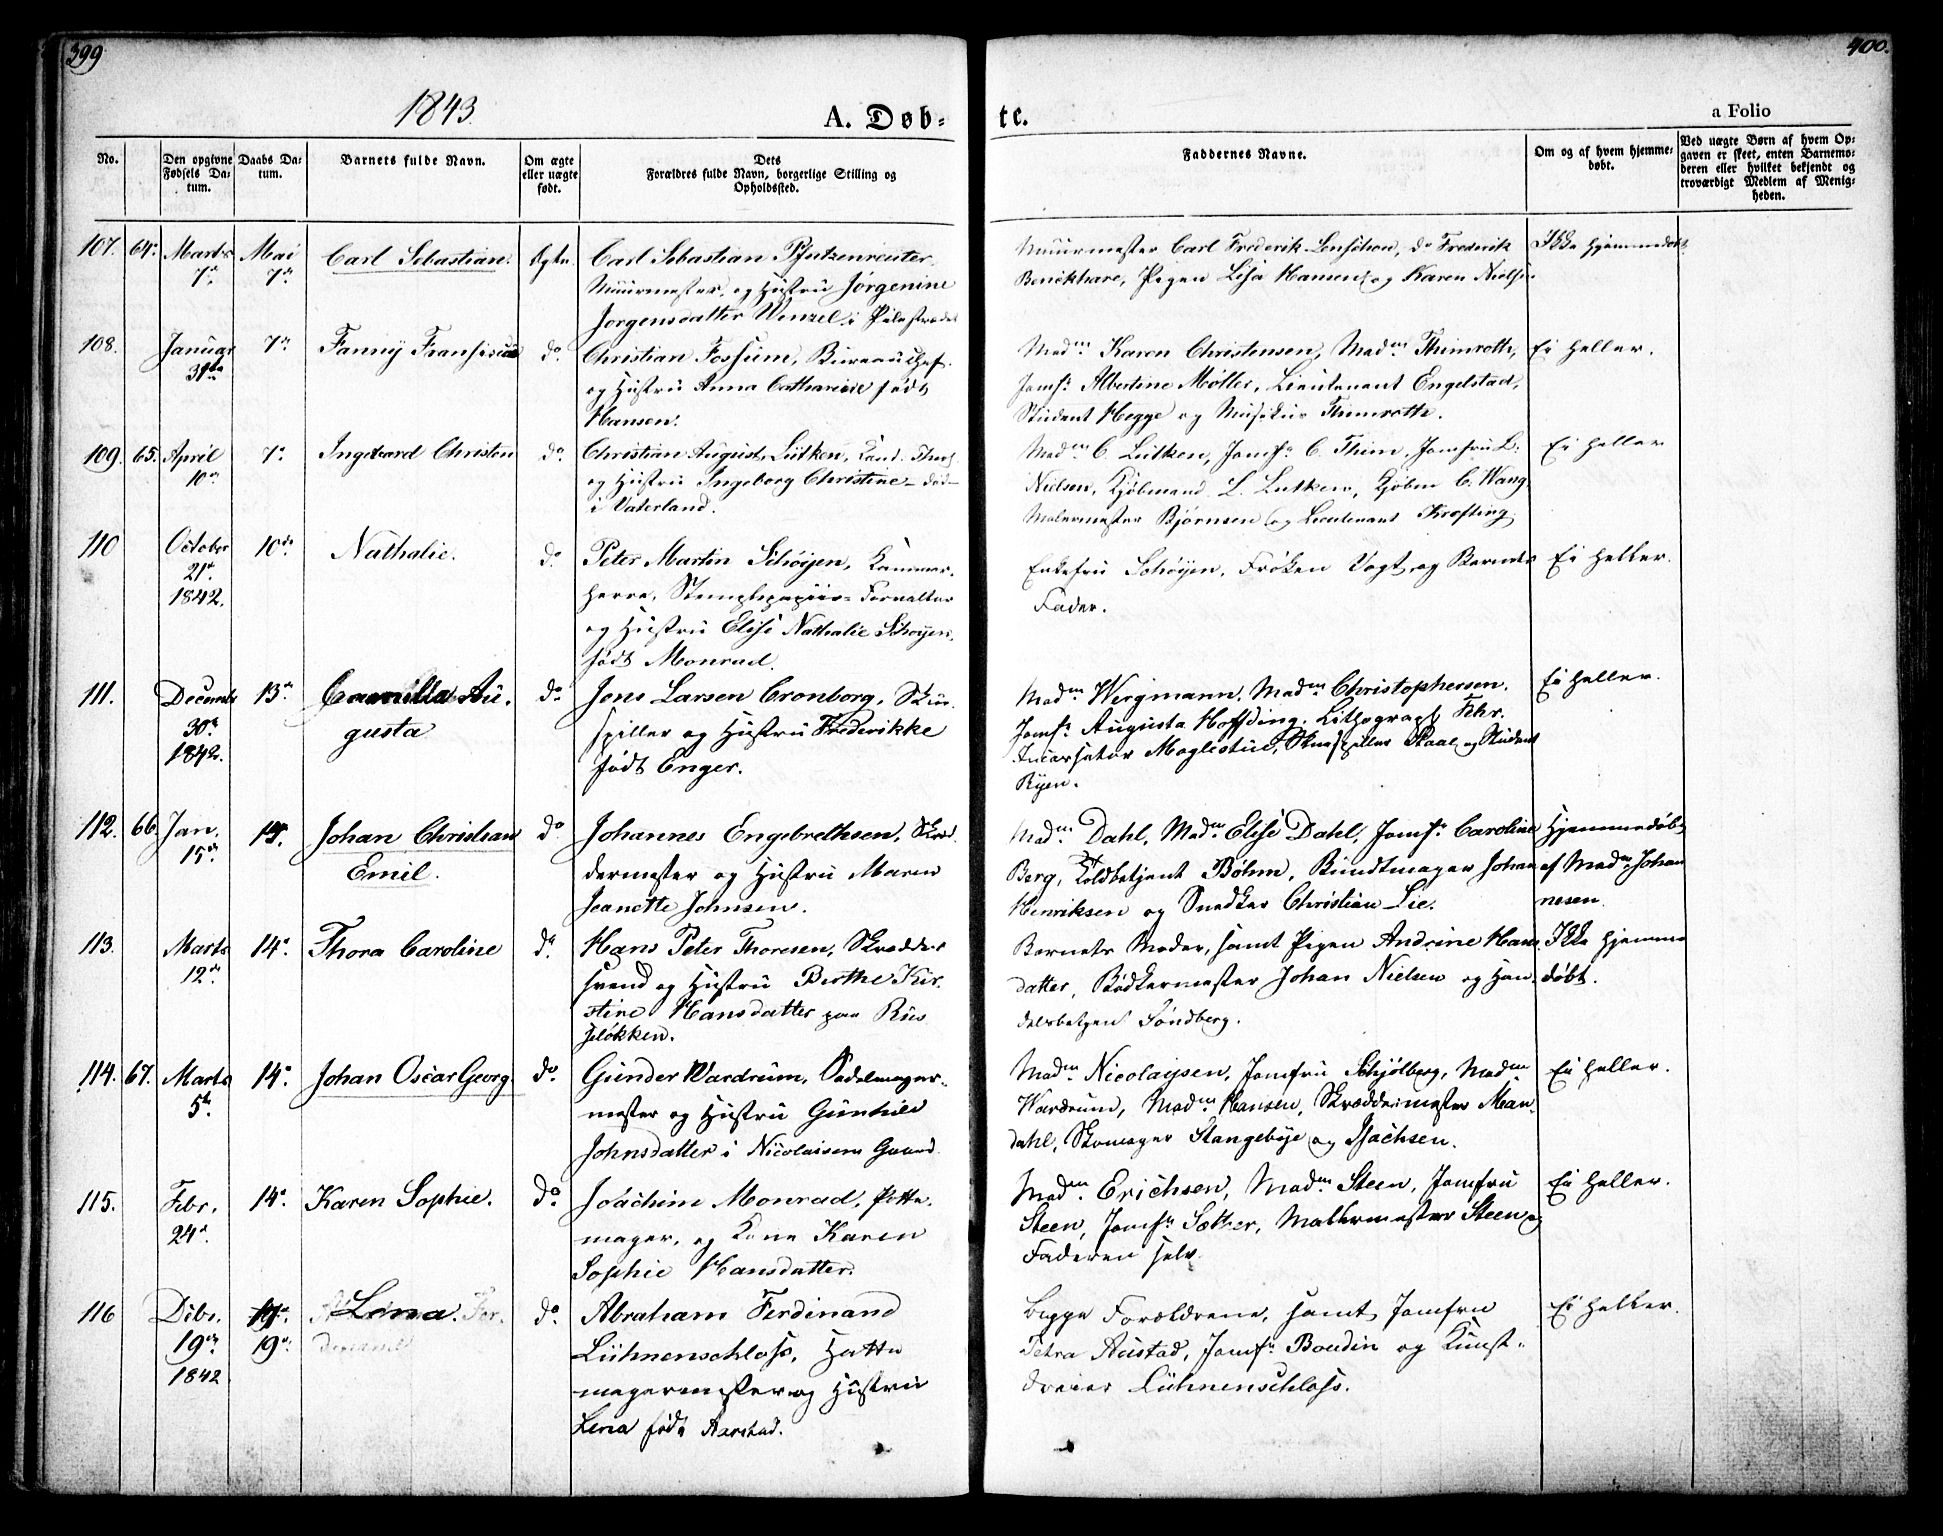 399
400.
1843.
A. Døb-
te.
a Folio
No.
Den opgivne Fødsels Da-
tum.
Daabs Da-
tum.
Barnets fulde Navn.
Om ægte eller uægte født.
Dets
Forældres fulde Navn, borgerlige Stilling og
Opholdssted.
Faddernes Navne.
Om og af hvem hjemme-
døbt.
Ved uægte Børn af hvem Op-
gaven er skeet, enten Barnemo-
deren eller hvilket bekjendt og
troværdigt Medlem af Menig-
heden.
107. 64. Marts Mai Carl Sebastian. Ægte. Carl Sebastian Pfutzenreuter,
7de 7de Muurmester, og Hustru Jørgenine
Jørgensdatter Wenzel i Pilestrædet
Muurmester Carl Frederik Do Frederik
Pigen Lisa Hansen og Karen Nielsen
Ikke hjemmedøbt
108. Januar 7de Fanny Do Christian Fossum, Bureauchef
31te og Hustru Anna Catharine født
Hansen.
Madm Karen Christensen, Madm Thimrothe,
Jomfr Albertine Møller, Lieutenant Engelstad,
Student Hegge og Musikus Thimrothe.
Ei heller.
109. 65. April 7de Christen do Christian August Lütken, Cand. Theol.
10de og Hustru Ingeborg Christine
i Vaterland.
Madm C. Lütken, Jomfr C. Thim, Jomfru L.
Nielsen, Kjøbmand L. Lutken, Kjøbm C. Wang
Malermester Bjørnsen og Lieutenant Krefting.
Ei heller
110 October 10de Nathalie. do Peter Martin Schøyen, Kammer-
21de herre, Stempletpapiirs-Forvalter
1842. og Hustru Elise Nathalie Schøyen,
født Monrad.
Enkefru Schøyen, Frøken Vogt og Barnets
Fader.
Ei heller.
111. Decembr 13de Camilla Au- do Jens Larsen Cronborg, Skue-
30te gusta spiller og Hustru Frederikke
1842. født Enger.
Madm Wergmann, Madm Christophersen.
Jomfr Augusta Høffding, Lithograph Fehr.
Skuespiller Skaal og Student
Ryen.
Ei heller.
112. 66. Jan. 14. Johan Christian do Johannes Engebrethsen, Skræd-
15de Emil. dermester og Hustru Maren
Jeanette Johnsen.
Madm Dahl, Madm Elise Dahl, Jomfr Caroline
Berg, Toldbetjent Bøhm, Bundtmager Johan
Henriksen og Snedker Christian Lie.
Hjemmedøbt
af Madm Johan
nesen.
113. Marts 14de Thora Caroline do Hans Peter Thoresen, Skrædder
12te svend og Hustru Birthe Kir-
stine Hansdatter paa Rus
løkken.
Barnets Moder, samt Pigen Andrine Hans
datter, Bødkermester Johan Nielsen og Han-
delsbetjent Søndberg.
Ikke hjemme
døbt.
114. 67. Marts 14de Johan Oscar Georg. do Gunder Wardrum, Sadelmager-
5te mester og Hustru Gunhild
Johnsdatter i Nicolaisens Gaard.
Madm Nicolaysen, Jomfru Schjølberg, Madm
Wardrum, Madm Hansen, Skræddermester Man-
dahl, Skomager Stangebye og Isachsen.
Ei heller.
115. Febr. 14de Karen Sophie. Do Joachim Monrad, Potte-
24de mager, og Kone Karen
Sophie Hansdatter.
Madm Erichsen, Madm Steen, Jomfru
Steen, Jomfr Sæther, Mallermester Steen og
Faderen selv.
Ei heller.
116 Debr. Lena. do Abraham Ferdinand
19de 19de Lühnenschloss, Hatte
1842 magermester og Hustru
Lena født Aarstad.
Begge Forældrene, samt Jomfru
Petra Austad, Jomfr Boudin og Kunst-
dreier Lühnenschloss.
Ei heller.